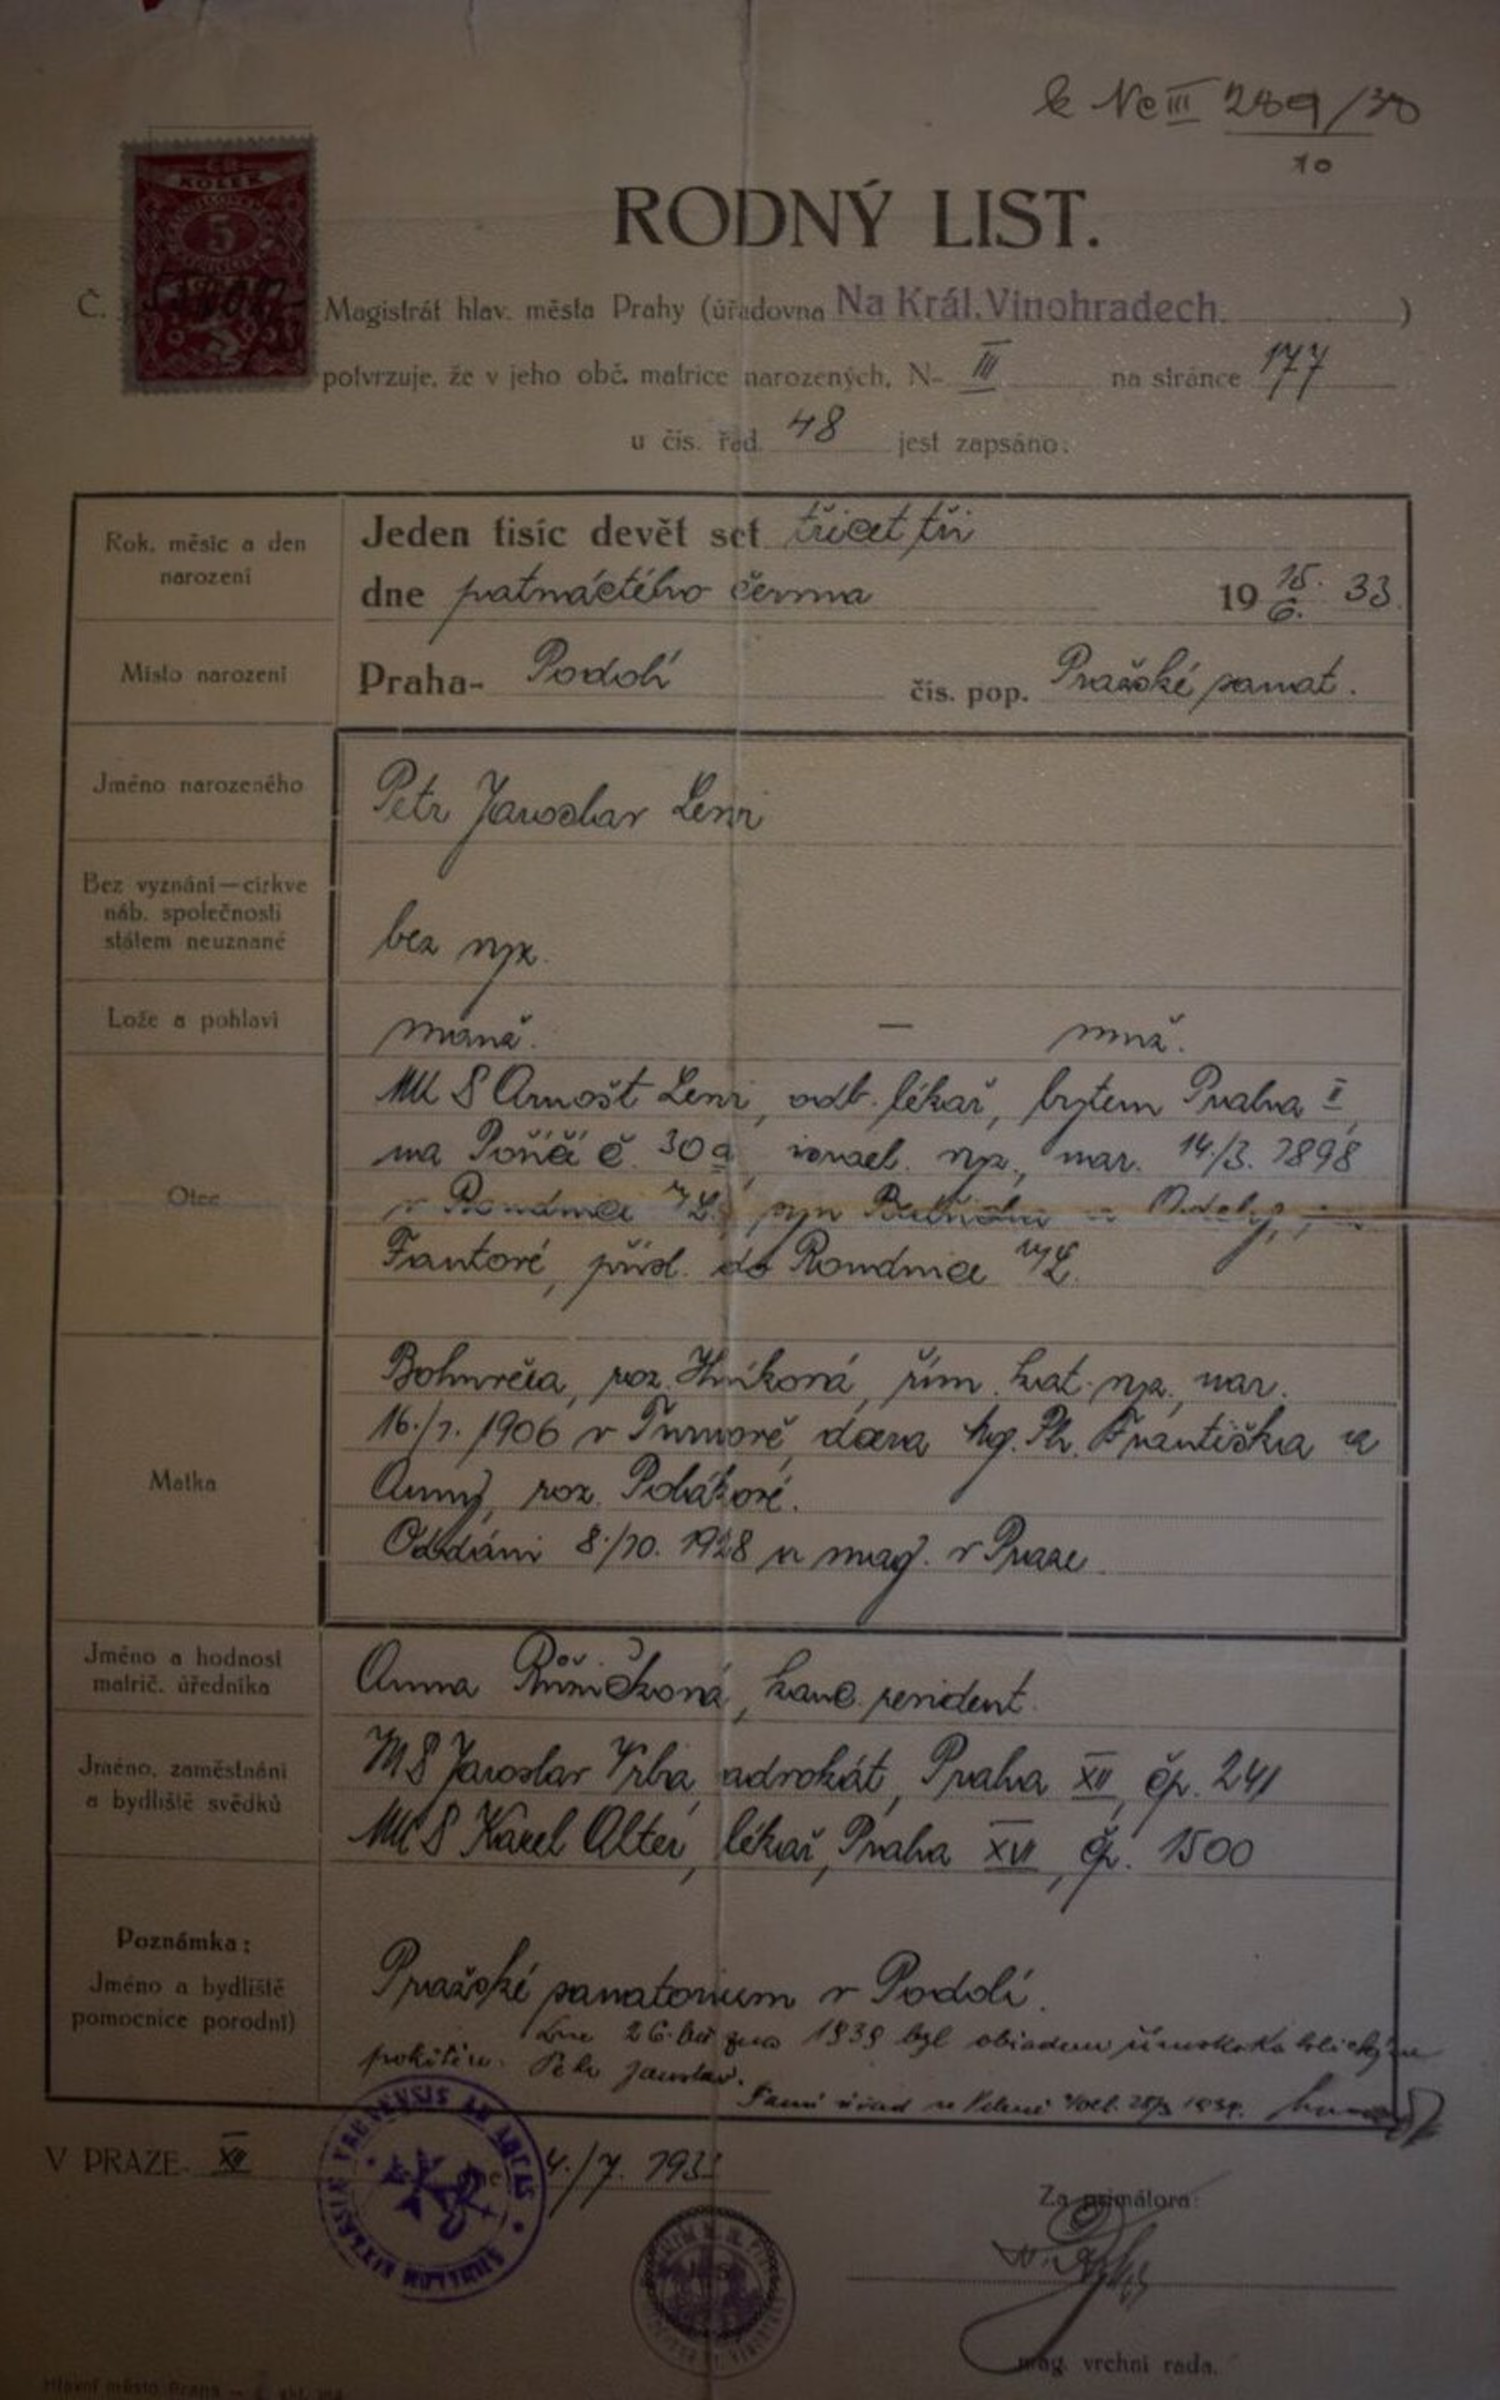 k Nc III 289/38
10
KOLEK
5
RODNÝ LIST.
Č. Magistrát hlav. města Prahy (úřadovna Na Král. Vinohradech. )
potvrzuje, že v jeho obč. matrice narozených, N- III na stránce 177
u čís. řad. 48 jest zapsáno:
Rok, měsíc a den narození
Jeden tisíc devět set třicet tři
dne patnáctého června 19 15. 6. 33.
Místo narození
Praha- Podolí čís. pop. Pražské sanat.
Jméno narozeného
Petr Jaroslav Lenz
Bez vyznání—církve
náb. společnosti
státem neuznané
bez vyz.
Lože a pohlaví
manž. — muž.
Otec
MUDr Arnošt Lenz, odb. lékař, bytem Praha II,
na Poříčí č. 30a, israel. vyz., nar. 14./3. 1898
v Roudnici n/L.; syn
Fantové, přísl. do Roudnice n/L.
Matka
Bohumila, roz. řím. kat. vyz., nar.
16./7. 1906 v Turnově, dcera Františka a
Anny, roz. Polákové.
Oddáni 8./10. 1928 u mag. v Praze
Jméno a hodnost
matrič. úředníka
Anna Růžičková, kanc. resident.
Jméno, zaměstnání
a bydliště svědků
JUDr Jaroslav Vrba, advokát, Praha XII, čp. 241
MUDr Karel Alter, lékař, Praha XVI, čp. 1500
Poznámka:
Jméno a bydliště
pomocnice porodní)
Pražské sanatorium v Podolí.
Dne 26. března 1939 byl obřadem římskokatolickým
pokřtěn. Petr Jaroslav.
Farní úřad ve 1939.
V PRAZE- XII dne 4./7. 193
Za primátora:
mag. vrchní rada.